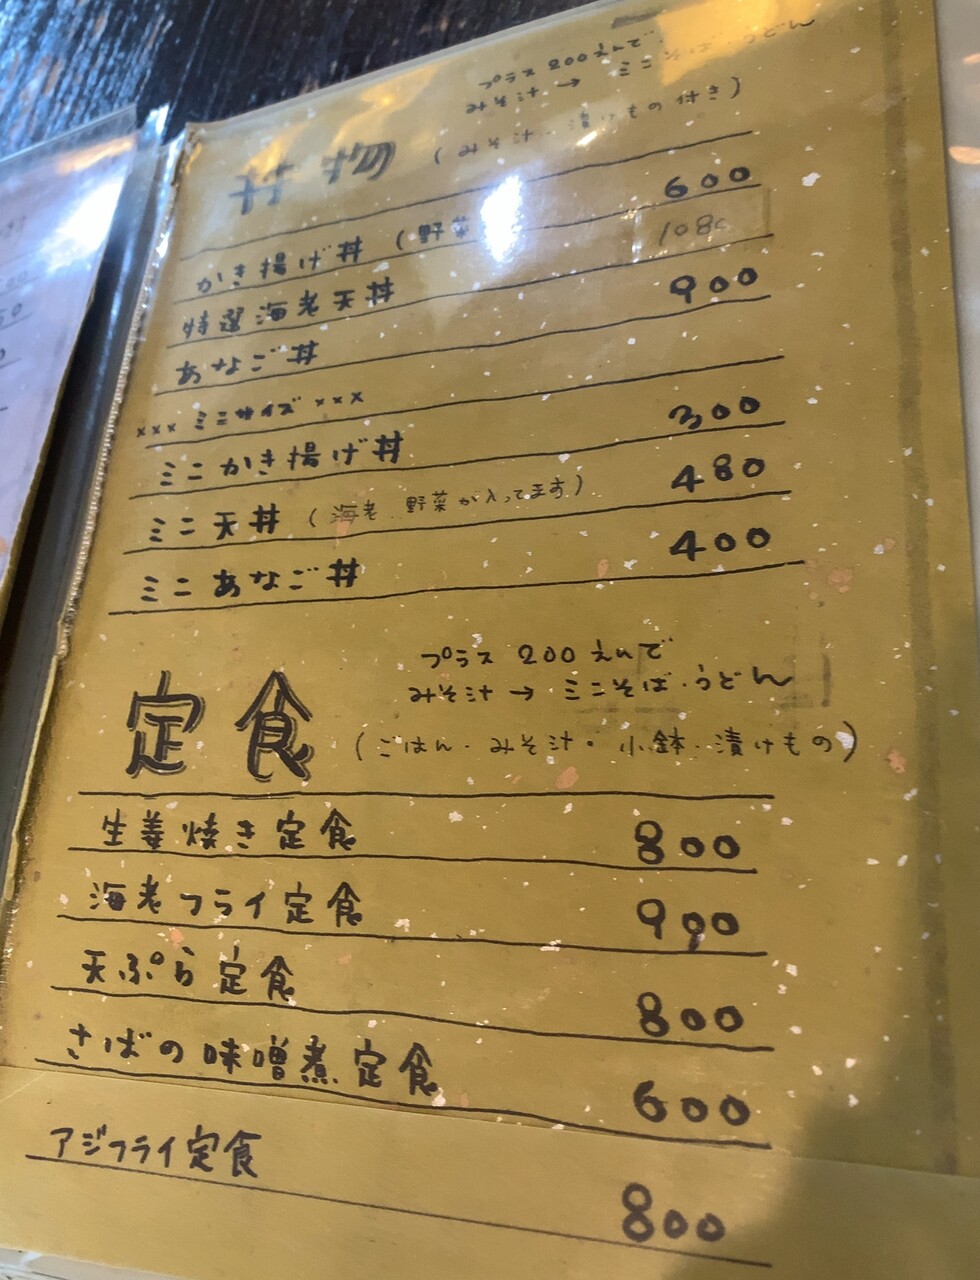 プラス 200えんで
みそ汁 → ミニそば・うどん
丼物 (みそ汁・漬けもの付き)
かき揚げ丼 (野菜 600
特選海老天丼 1080
あなご丼 900
××× ミニサイズ ×××
ミニかき揚げ丼 300
ミニ天丼 (海老、野菜が入ってます) 480
ミニあなご丼 400
プラス 200えんで
みそ汁 → ミニそば・うどん
定食 (ごはん・みそ汁・小鉢・漬けもの)
生姜焼き定食 800
海老フライ定食 900
天ぷら定食 800
さばの味噌煮定食 600
アジフライ定食 800